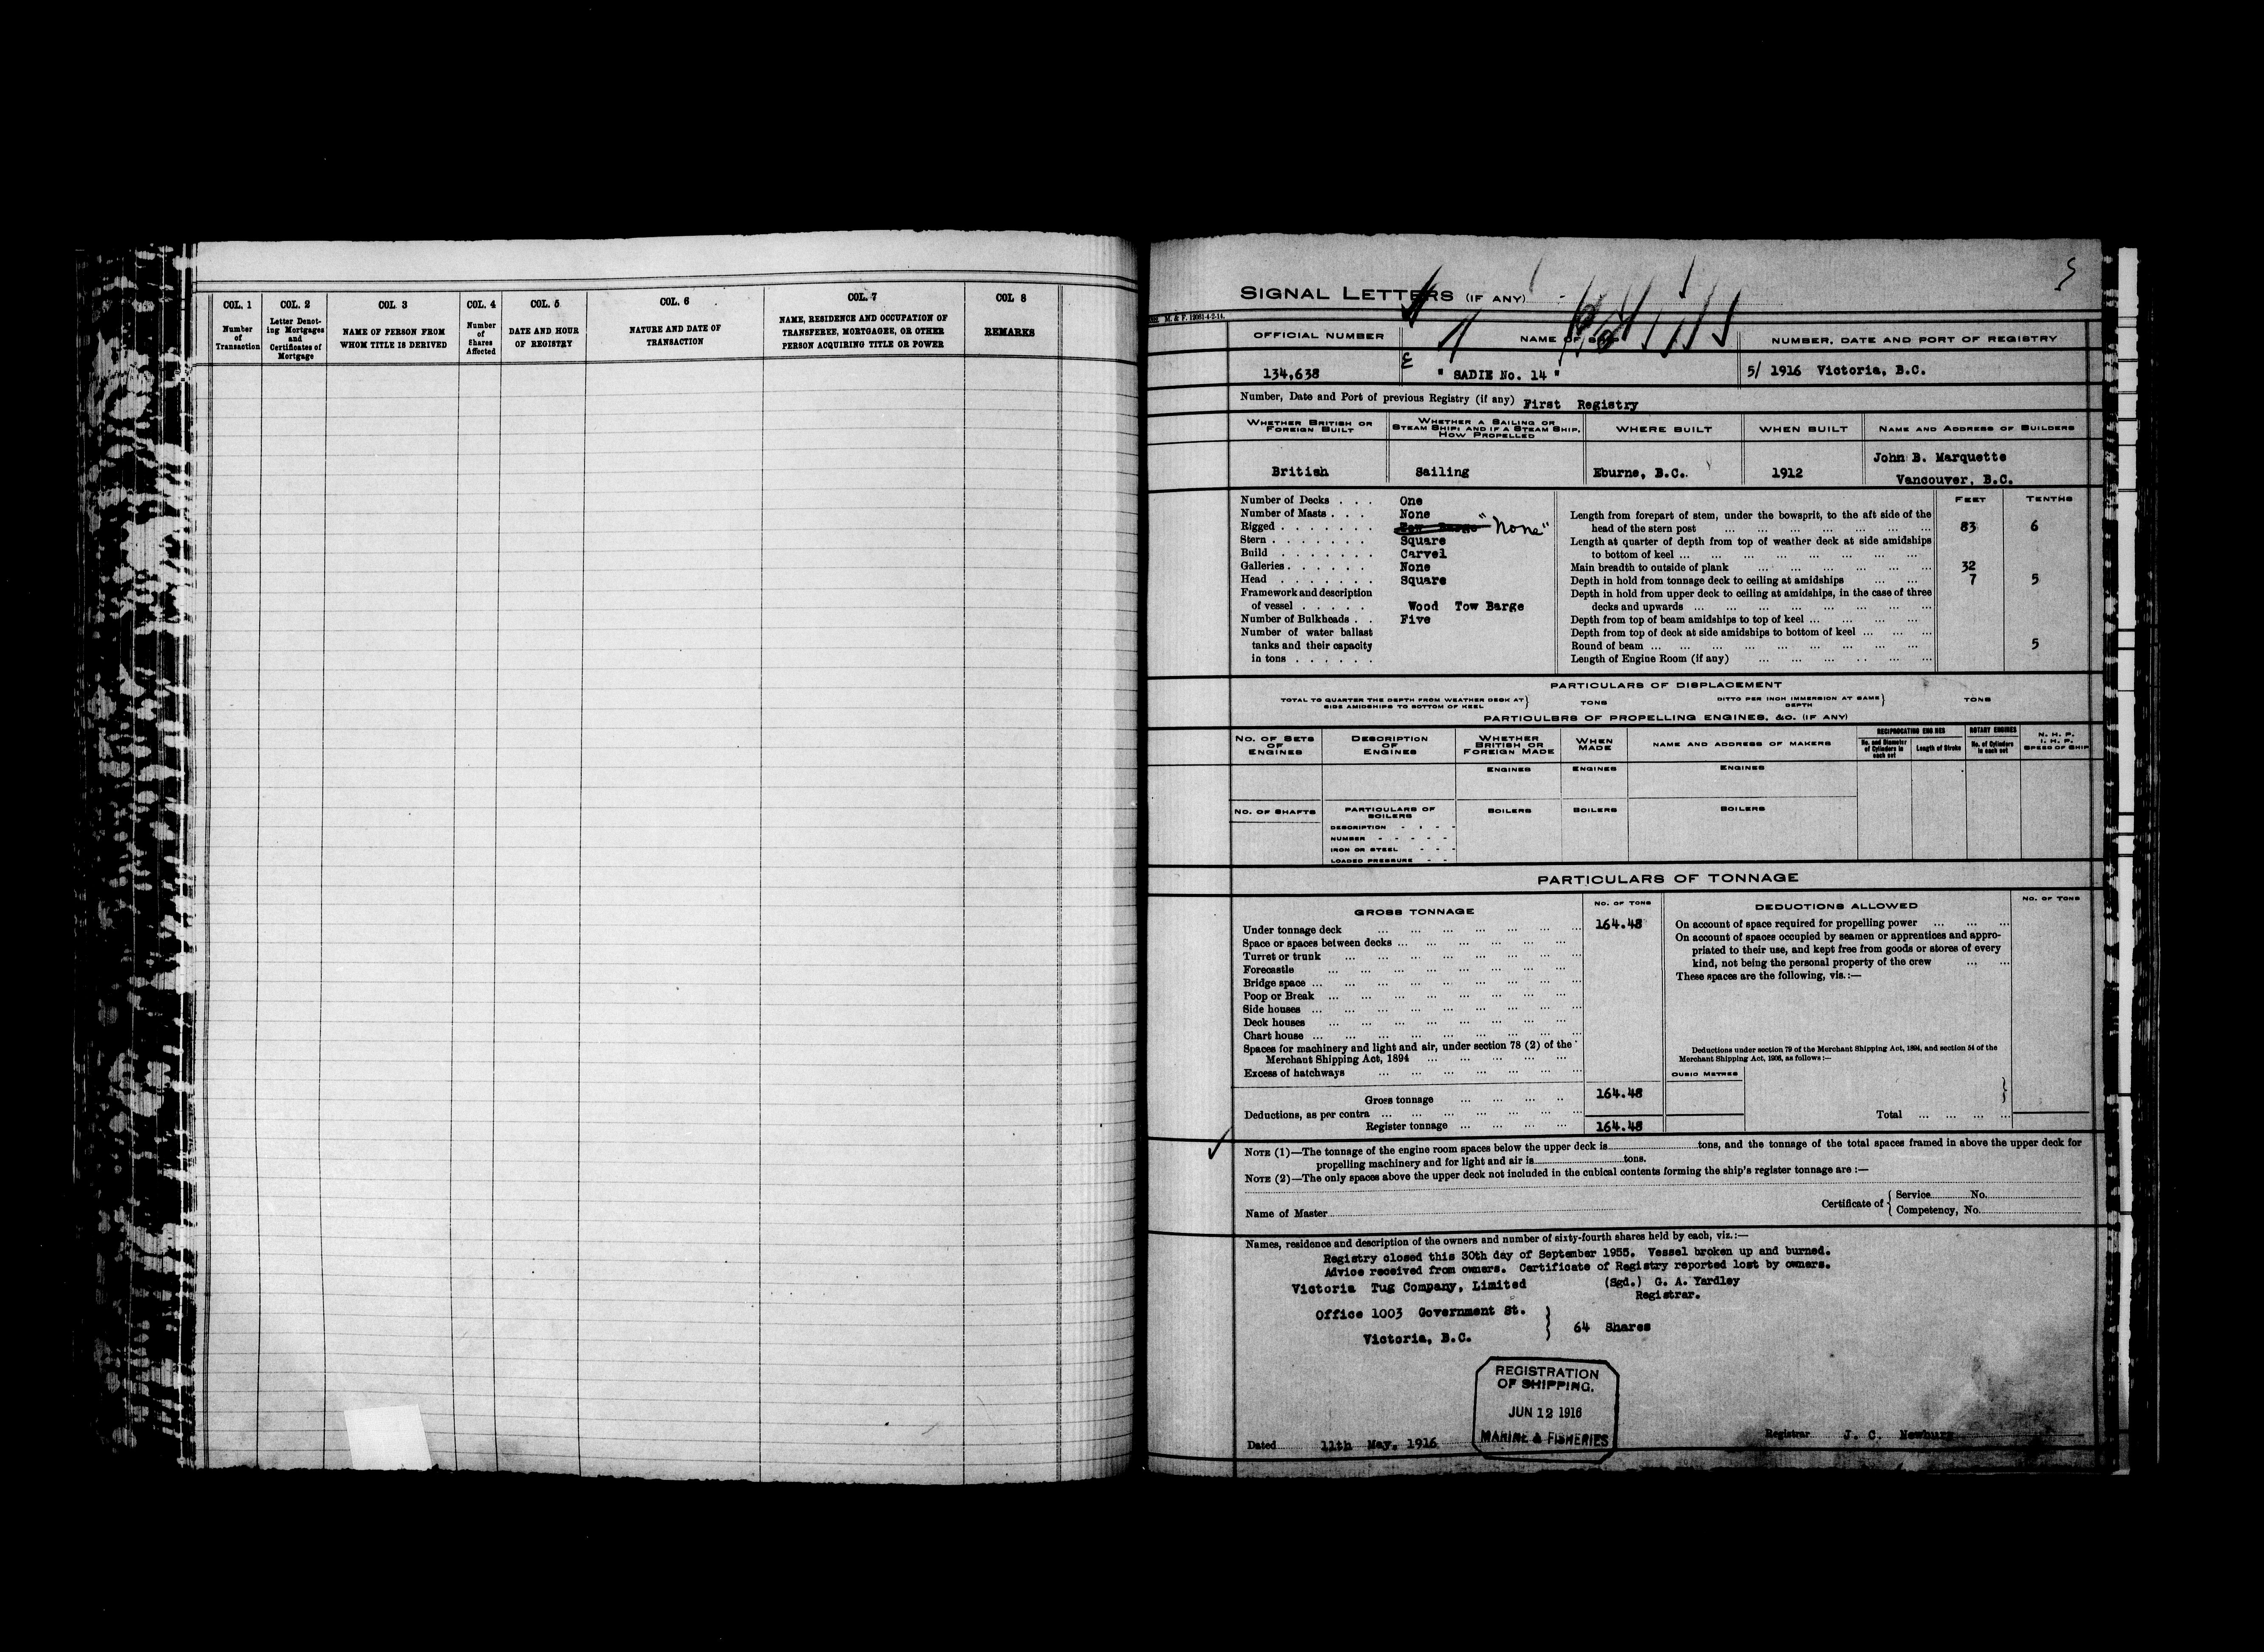 COL. 1
Number
of
Transaction
COL. 2
Letter Denot-
ing Mortgages
and
Certificates of
Mortgage
COL. 3
NAME OF PERSON FROM
WHOM TITLE IS DERIVED
COL. 4
Number
of
Shares
Affected
COL. 5
DATE AND HOUR
OF REGISTRY
COL. 6
NATURE AND DATE OF
TRANSACTION
COL. 7
NAME, RESIDENCE AND OCCUPATION OF
TRANSFEREE, MORTGAGEE, OR OTHER
PERSON ACQUIRING TITLE OR POWER
COL. 8
REMARKS
5
SIGNAL LETTERS (IF ANY)
M. & F. 12081-4-2-14.
OFFICIAL NUMBER
NAME OF SHIP
NUMBER, DATE AND PORT OF REGISTRY
134,638
" SADIE No. 14 "
5/ 1916 Victoria, B.C.
Number, Date and Port of previous Registry (if any) First Registry
WHETHER BRITISH OR
FOREIGN BUILT
WHETHER A SAILING OR
STEAM SHIP; AND IF A STEAM SHIP,
HOW PROPELLED
WHERE BUILT
WHEN BUILT
NAME AND ADDRESS OF BUILDERS
British
Sailing
Eburne, B.C.
1912
John B. Marquette
Vancouver, B.C.
Number of Decks . . . One
Number of Masts . . . None
Rigged . . . . . . . Tow Barge "None"
Stern . . . . . . . Square
Build . . . . . . . Carvel
Galleries . . . . . . None
Head . . . . . . . Square
Framework and description
of vessel . . . . . Wood Tow Barge
Number of Bulkheads . . Five
Number of water ballast
tanks and their capacity
in tons . . . . . .
FEET
TENTHS
Length from forepart of stem, under the bowsprit, to the aft side of the
head of the stern post ... 83 6
Length at quarter of depth from top of weather deck at side amidships
to bottom of keel ...
Main breadth to outside of plank ... 32
Depth in hold from tonnage deck to ceiling at amidships ... 7 5
Depth in hold from upper deck to ceiling at amidships, in the case of three
decks and upwards ...
Depth from top of beam amidships to top of keel ...
Depth from top of deck at side amidships to bottom of keel ...
Round of beam ... 5
Length of Engine Room (if any) ...
PARTICULARS OF DISPLACEMENT
TOTAL TO QUARTER THE DEPTH FROM WEATHER DECK AT
SIDE AMIDSHIPS TO BOTTOM OF KEEL
TONS
DITTO PER INCH IMMERSION AT SAME
DEPTH
TONS
PARTICULBRS OF PROPELLING ENGINES, &C. (IF ANY)
NO. OF SETS
OF
ENGINES
DESCRIPTION
OF
ENGINES
WHETHER
BRITISH OR
FOREIGN MADE
WHEN
MADE
NAME AND ADDRESS OF MAKERS
RECIPROCATING ENGINES
No. and Diameter
of Cylinders in
each set
Length of Stroke
ROTARY ENGINES
No. of Cylinders
in each set
N. H. P.
I. H. P.
SPEED OF SHIP
ENGINES
ENGINES
ENGINES
NO. OF SHAFTS
PARTICULARS OF
BOILERS
BOILERS
BOILERS
BOILERS
DESCRIPTION
NUMBER
IRON OR STEEL
LOADED PRESSURE
PARTICULARS OF TONNAGE
GROSS TONNAGE
NO. OF TONS
Under tonnage deck ... 164.48
Space or spaces between decks ...
Turret or trunk ...
Forecastle ...
Bridge space ...
Poop or Break ...
Side houses ...
Deck houses ...
Chart house ...
Spaces for machinery and light and air, under section 78 (2) of the
Merchant Shipping Act, 1894 ...
Excess of hatchways ...
Gross tonnage ... 164.48
Deductions, as per contra ...
Register tonnage ... 164.48
DEDUCTIONS ALLOWED
NO. OF TONS
On account of space required for propelling power ...
On account of spaces occupied by seamen or apprentices and appro-
priated to their use, and kept free from goods or stores of every
kind, not being the personal property of the crew ...
These spaces are the following, vis.:—
Deductions under section 79 of the Merchant Shipping Act, 1894, and section 54 of the
Merchant Shipping Act, 1906, as follows :—
CUBIC METRES
Total ...
NOTE (1)—The tonnage of the engine room spaces below the upper deck is tons, and the tonnage of the total spaces framed in above the upper deck for
propelling machinery and for light and air is tons.
NOTE (2)—The only spaces above the upper deck not included in the cubical contents forming the ship's register tonnage are :—
Name of Master
Certificate of
Service No.
Competency, No.
Names, residence and description of the owners and number of sixty-fourth shares held by each, viz.:—
Registry closed this 30th day of September 1955. Vessel broken up and burned.
Advice received from owners. Certificate of Registry reported lost by owners.
Victoria Tug Company, Limited
(Sgd.) G. A. Yardley
Registrar.
Office 1003 Government St.
Victoria, B.C.
64 Shares
REGISTRATION
OF SHIPPING.
JUN 12 1916
MARINE & FISHERIES
Dated 11th May, 1916
Registrar J. C. Newbury